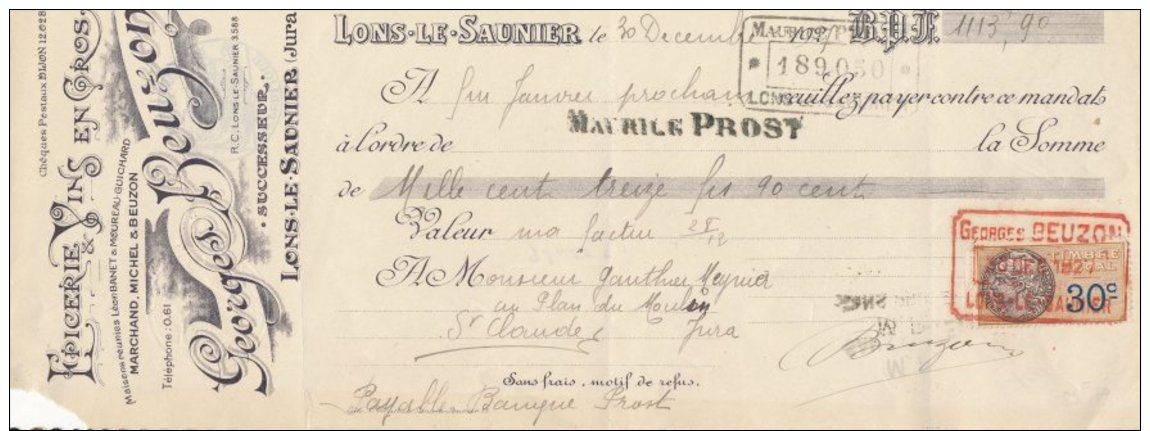 Chèques Postaux DIJON 12.628
EPICERIE & VINS EN GROS.
Maisons réunies Léon BANET & MOUREAU-GUICHARD
MARCHAND, MICHEL & BEUZON
Téléphone: 0.61
Georges Beuzon
R.C. LONS-LE-SAUNIER 3.588
· SUCCESSEUR ·
LONS-LE-SAUNIER (Jura)
LONS-LE-SAUNIER le 30 Décembre B.P.F. 1113,90
189050
A fin Janvier prochain veuillez payer contre ce mandat
MAURICE PROST
à l'ordre de la Somme
de Mille cent treize frs 90 cent
Valeur ma facture
A Monsieur Gauthier Meynier
au Plan du Moulin
St Claude Jura
GEORGES BEUZON
TIMBRE
LONS-LE-SAUNIER
30c
Beuzon
Sans frais, motif de refus.
Payable Banque Prost